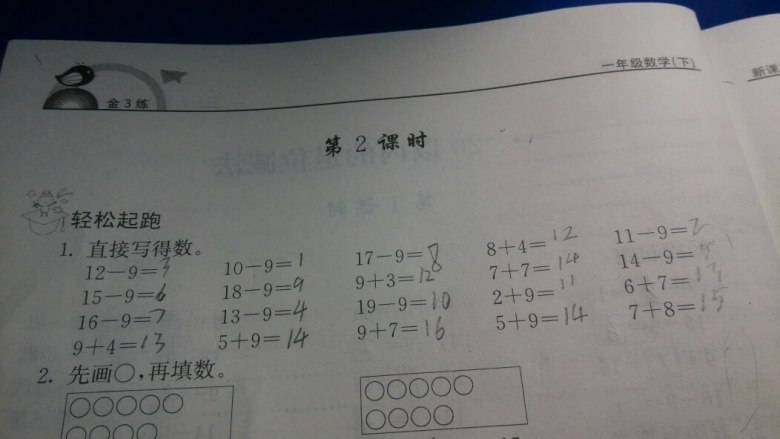 一年级数学(下)
新课
金3练
第2课时
轻松起跑
1. 直接写得数。
12-9=3 10-9=1 17-9=8 8+4=12 11-9=2
15-9=6 18-9=9 9+3=12 7+7=14 14-9=
16-9=7 13-9=4 19-9=10 2+9=11 6+7=13
9+4=13 5+9=14 9+7=16 5+9=14 7+8=15
2. 先画○,再填数。